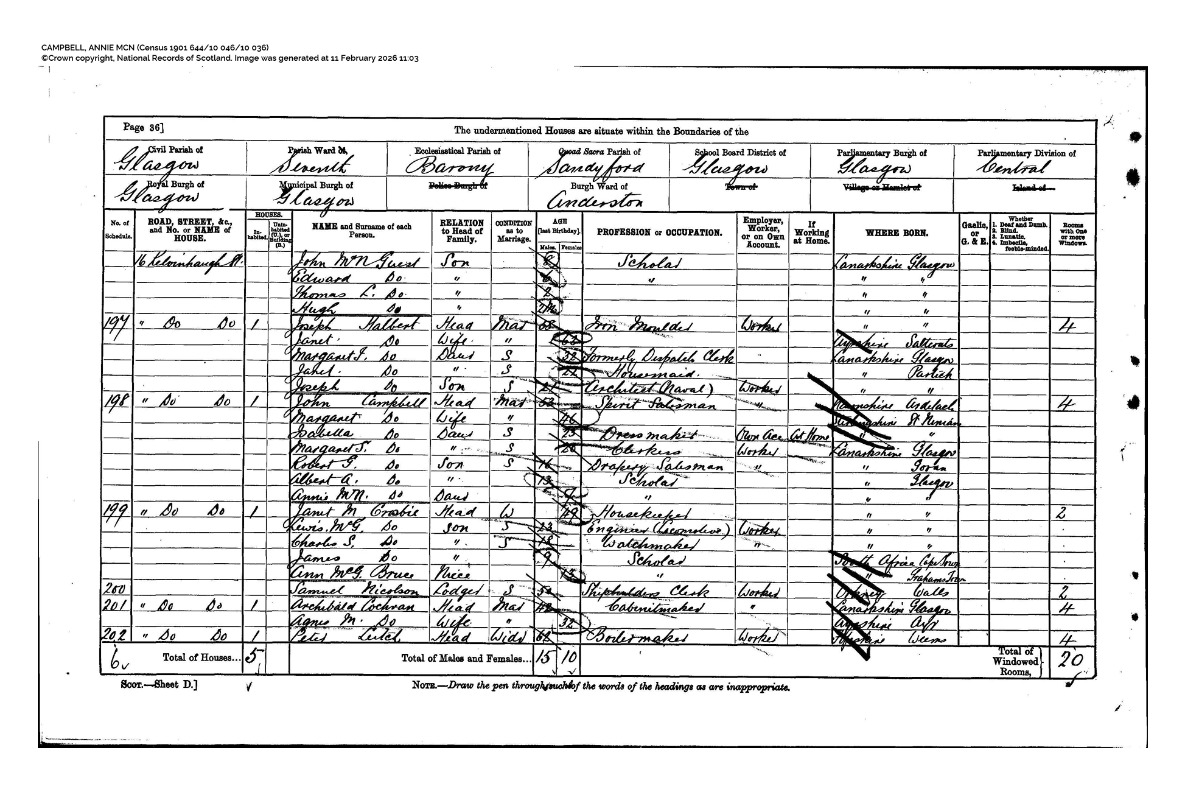 CAMPBELL, ANNIE MCN (Census 1901 644/10 046/10 036)
©Crown copyright, National Records of Scotland. Image was generated at 11 February 2026 11:03
Page 36] The undermentioned Houses are situate within the Boundaries of the
Civil Parish of Parish Ward of, Ecclesiastical Parish of Quoad Sacra Parish of School Board District of Parliamentary Burgh of Parliamentary Division of
Glasgow Seventh Barony Sandyford Glasgow Glasgow Central
Royal Burgh of Municipal Burgh of Police Burgh of Burgh Ward of Town of Village or Hamlet of Island of
Glasgow Glasgow Anderston
No. of Schedule. ROAD, STREET, &c., and No. or NAME of HOUSE. HOUSES. Inhabited. Uninhabited (U.), or Building (B.) NAME and Surname of each Person. RELATION to Head of Family. CONDITION as to Marriage. AGE (last Birthday). Males. Females. PROFESSION or OCCUPATION. Employer, Worker, or on Own Account. If Working at Home. WHERE BORN. Gaelic, or G. & E. Whether 1. Deaf and Dumb. 2. Blind. 3. Lunatic. 4. Imbecile, feeble-minded. Rooms with One or more Windows.
16 Kelvinhaugh St. John McN Guest Son 8 Scholar Lanarkshire Glasgow
Edward Do " 6 " " "
Thomas L. Do " 2 " "
Hugh Do " " "
197 " Do Do 1 Joseph Halbert Head Mar Iron Moulder Worker " " 4
Janet Do Wife " 62 Ayrshire Saltcoats
Margaret J. Do Daur S 32 Formerly Dispatch Clerk Lanarkshire Glasgow
Janet Do " S 22 Housemaid " Partick
Joseph Do Son S 21 Architect (Naval) Worker " "
198 " Do Do 1 John Campbell Head Mar 52 Spirit Salesman " Nairnshire Ardclach 4
Margaret Do Wife " 46 Stirlingshire St Ninians
Isabella Do Daur S 23 Dressmaker Own Acc At Home " "
Margaret S. Do " S 20 Clerkess Worker Lanarkshire Glasgow
Robert G. Do Son S 16 Drapery Salesman " " Govan
Albert A. Do " 13 Scholar " Glasgow
Annie McN. Do Daur 9 " " "
199 " Do Do 1 Janet M Crosbie Head W 49 Housekeeper " " 2
Lewis McG. Do Son S 23 Engineer (Locomotive) Worker " "
Charles S. Do " S 18 Watchmaker " " "
James Do " 9 Scholar South Africa Cape Town
Ann McG. Bruce Niece 13 " " Grahams Town
200 Samuel Nicolson Lodger S 52 Shipbuilders Clerk Worker Orkney Walls 2
201 " Do Do 1 Archibald Cochran Head Mar 42 Cabinetmaker " Lanarkshire Glasgow 4
Agnes M. Do Wife " 32 Ayrshire Ayr
202 " Do Do 1 Peter Leitch Head Widr 62 Boilermaker Worker Weems 4
6 Total of Houses... 5 Total of Males and Females... 15 10 Total of Windowed Rooms, 20
Scot.—Sheet D.] NOTE.—Draw the pen through such of the words of the headings as are inappropriate.